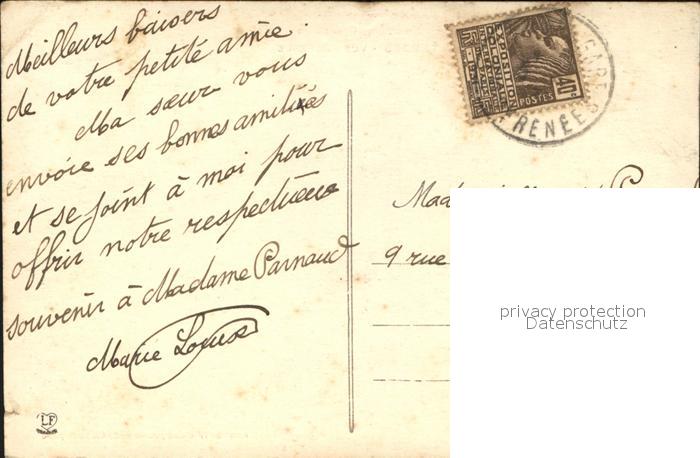 Meilleurs baisers
de votre petite amie.
Ma sœur vous
envoie ses bonnes amitiés
et se joint à moi pour
offrir notre respectueux
souvenir à Madame Parnaud
Marie Louise
LF
EXPOSITION
COLONIALE
INTERNATIONALE
PARIS 1931
40c
POSTES
RENEES
9 rue
privacy protection
Datenschutz